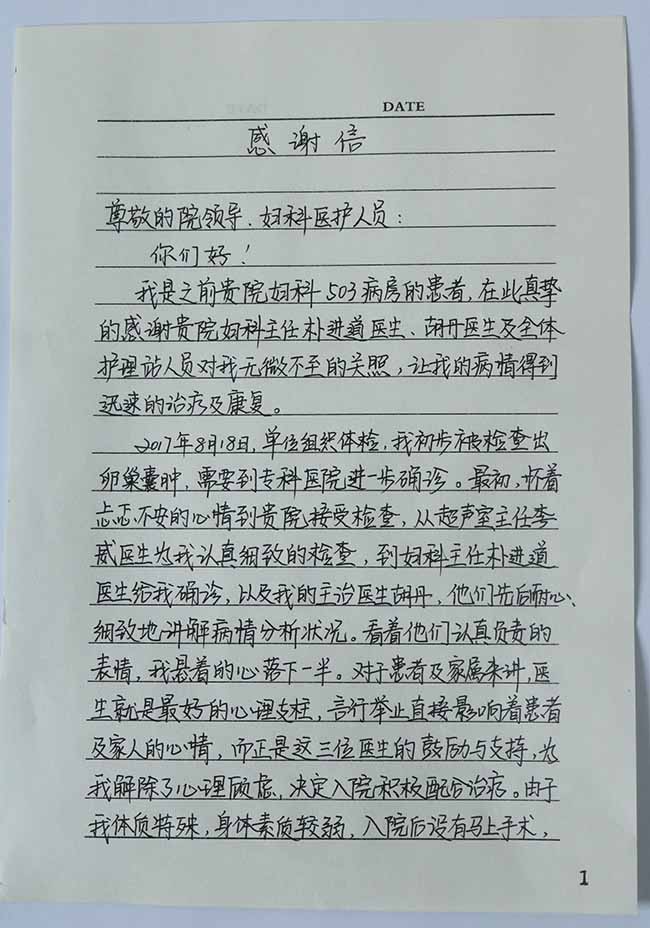 DATE
感谢信
尊敬的院领导、妇科医护人员：
你们好！
我是之前贵院妇科503病房的患者，在此真挚
的感谢贵院妇科主任朴进道医生、胡丹医生及全体
护理站人员对我无微不至的关照，让我的病情得到
迅速的治疗及康复。
2017年8月18日，单位组织体检，我初步被检查出
卵巢囊肿，需要到专科医院进一步确诊。最初，怀着
忐忑不安的心情到贵院接受检查，从超声室主任李
威医生为我认真细致的检查，到妇科主任朴进道
医生给我确诊，以及我的主治医生胡丹，他们先后耐心、
细致地讲解病情分析状况。看着他们认真负责的
表情，我悬着的心落下一半。对于患者及家属来讲，医
生就是最好的心理支柱，言行举止直接影响着患者
及家人的心情，而正是这三位医生的鼓励与支持，为
我解除了心理顾虑，决定入院积极配合治疗。由于
我体质特殊，身体素质较弱，入院后没有马上手术，
1